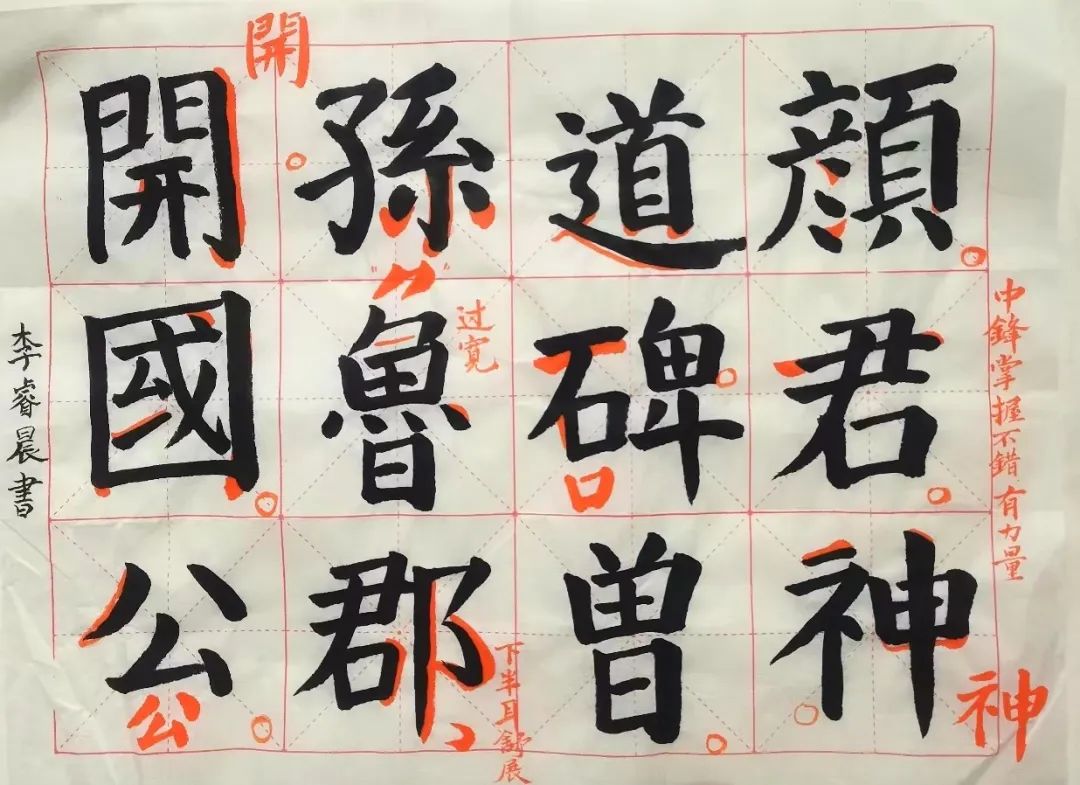 顔君神
道碑曽
孫魯郡
開國公
李睿晨書
中鋒掌握不錯 有力量
神
过宽
口
下半耳舒展
開
公